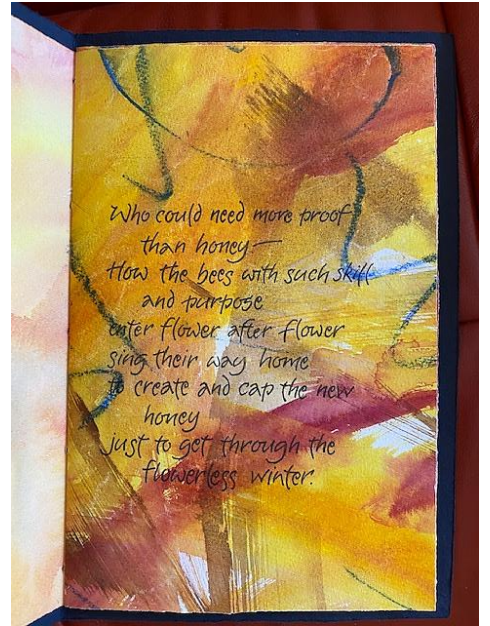 Who could need more proof
than honey—
How the bees with such skill
and purpose
enter flower after flower
sing their way home
to create and cap the new
honey
just to get through the
flowerless winter.